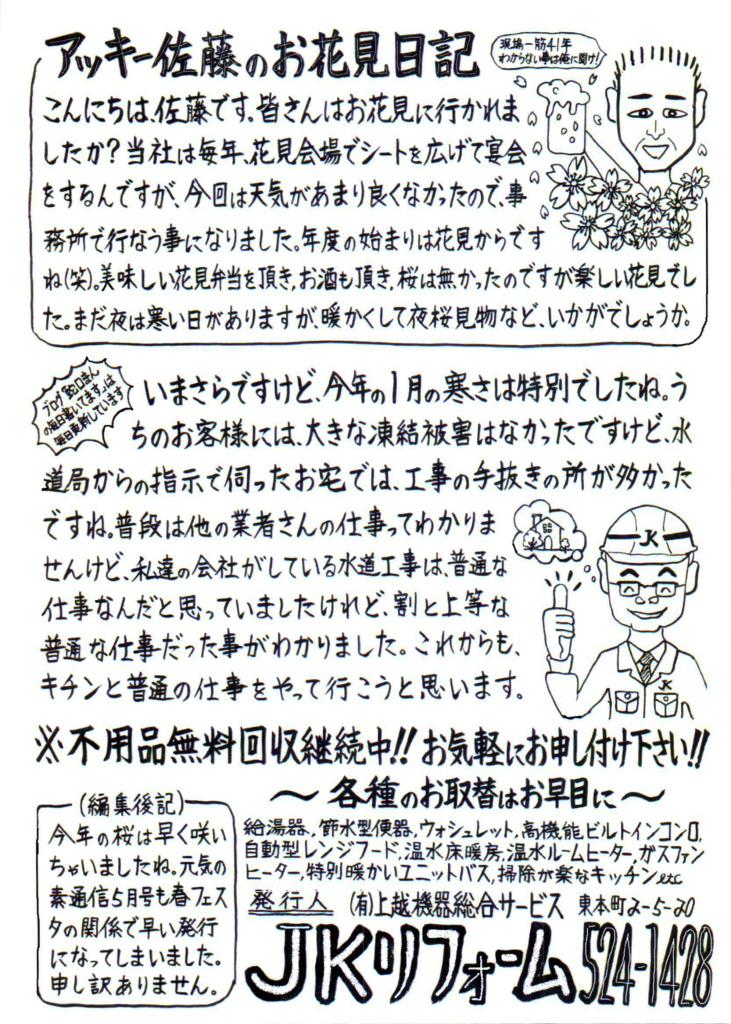 アッキー佐藤のお花見日記
現場一筋41年
わからない事は俺に聞け!
こんにちは、佐藤です。皆さんはお花見に行かれま
したか?当社は毎年、花見会場でシートを広げて宴会
をするんですが、今回は天気があまり良くなかったので、事
務所で行なう事になりました。年度の始まりは花見からです
ね(笑)。美味しい花見弁当を頂き、お酒も頂き、桜は無かったのですが楽しい花見でし
た。まだ夜は寒い日がありますが、暖かくして夜桜見物など、いかがでしょうか。
ブログ「蛇口まん
の毎日書いてます」は
毎日更新しています
いまさらですけど、今年の1月の寒さは特別でしたね。う
ちのお客様には、大きな凍結被害はなかったですけど、水
道局からの指示で伺ったお宅では、工事の手抜きの所が多かった
ですね。普段は他の業者さんの仕事ってわかりま
せんけど、私達の会社がしている水道工事は、普通な
仕事なんだと思っていましたけれど、割と上等な
普通な仕事だった事がわかりました。これからも、
キチンと普通の仕事をやって行こうと思います。
JK
JK
※不用品無料回収継続中!!お気軽にお申し付け下さい!!
〜各種のお取替はお早目に〜
給湯器、節水型便器、ウォシュレット、高機能ビルトインコンロ、
自動型レンジフード、温水床暖房、温水ルームヒーター、ガスファン
ヒーター、特別暖かいユニットバス、掃除が楽なキッチンetc
発行人 (有)上越機器総合サービス 東本町2-5-20
JKリフォーム 524-1428
(編集後記)
今年の桜は早く咲い
ちゃいましたね。元気の
素通信5月号も春フェス
タの関係で早い発行
になってしまいました。
申し訳ありません。